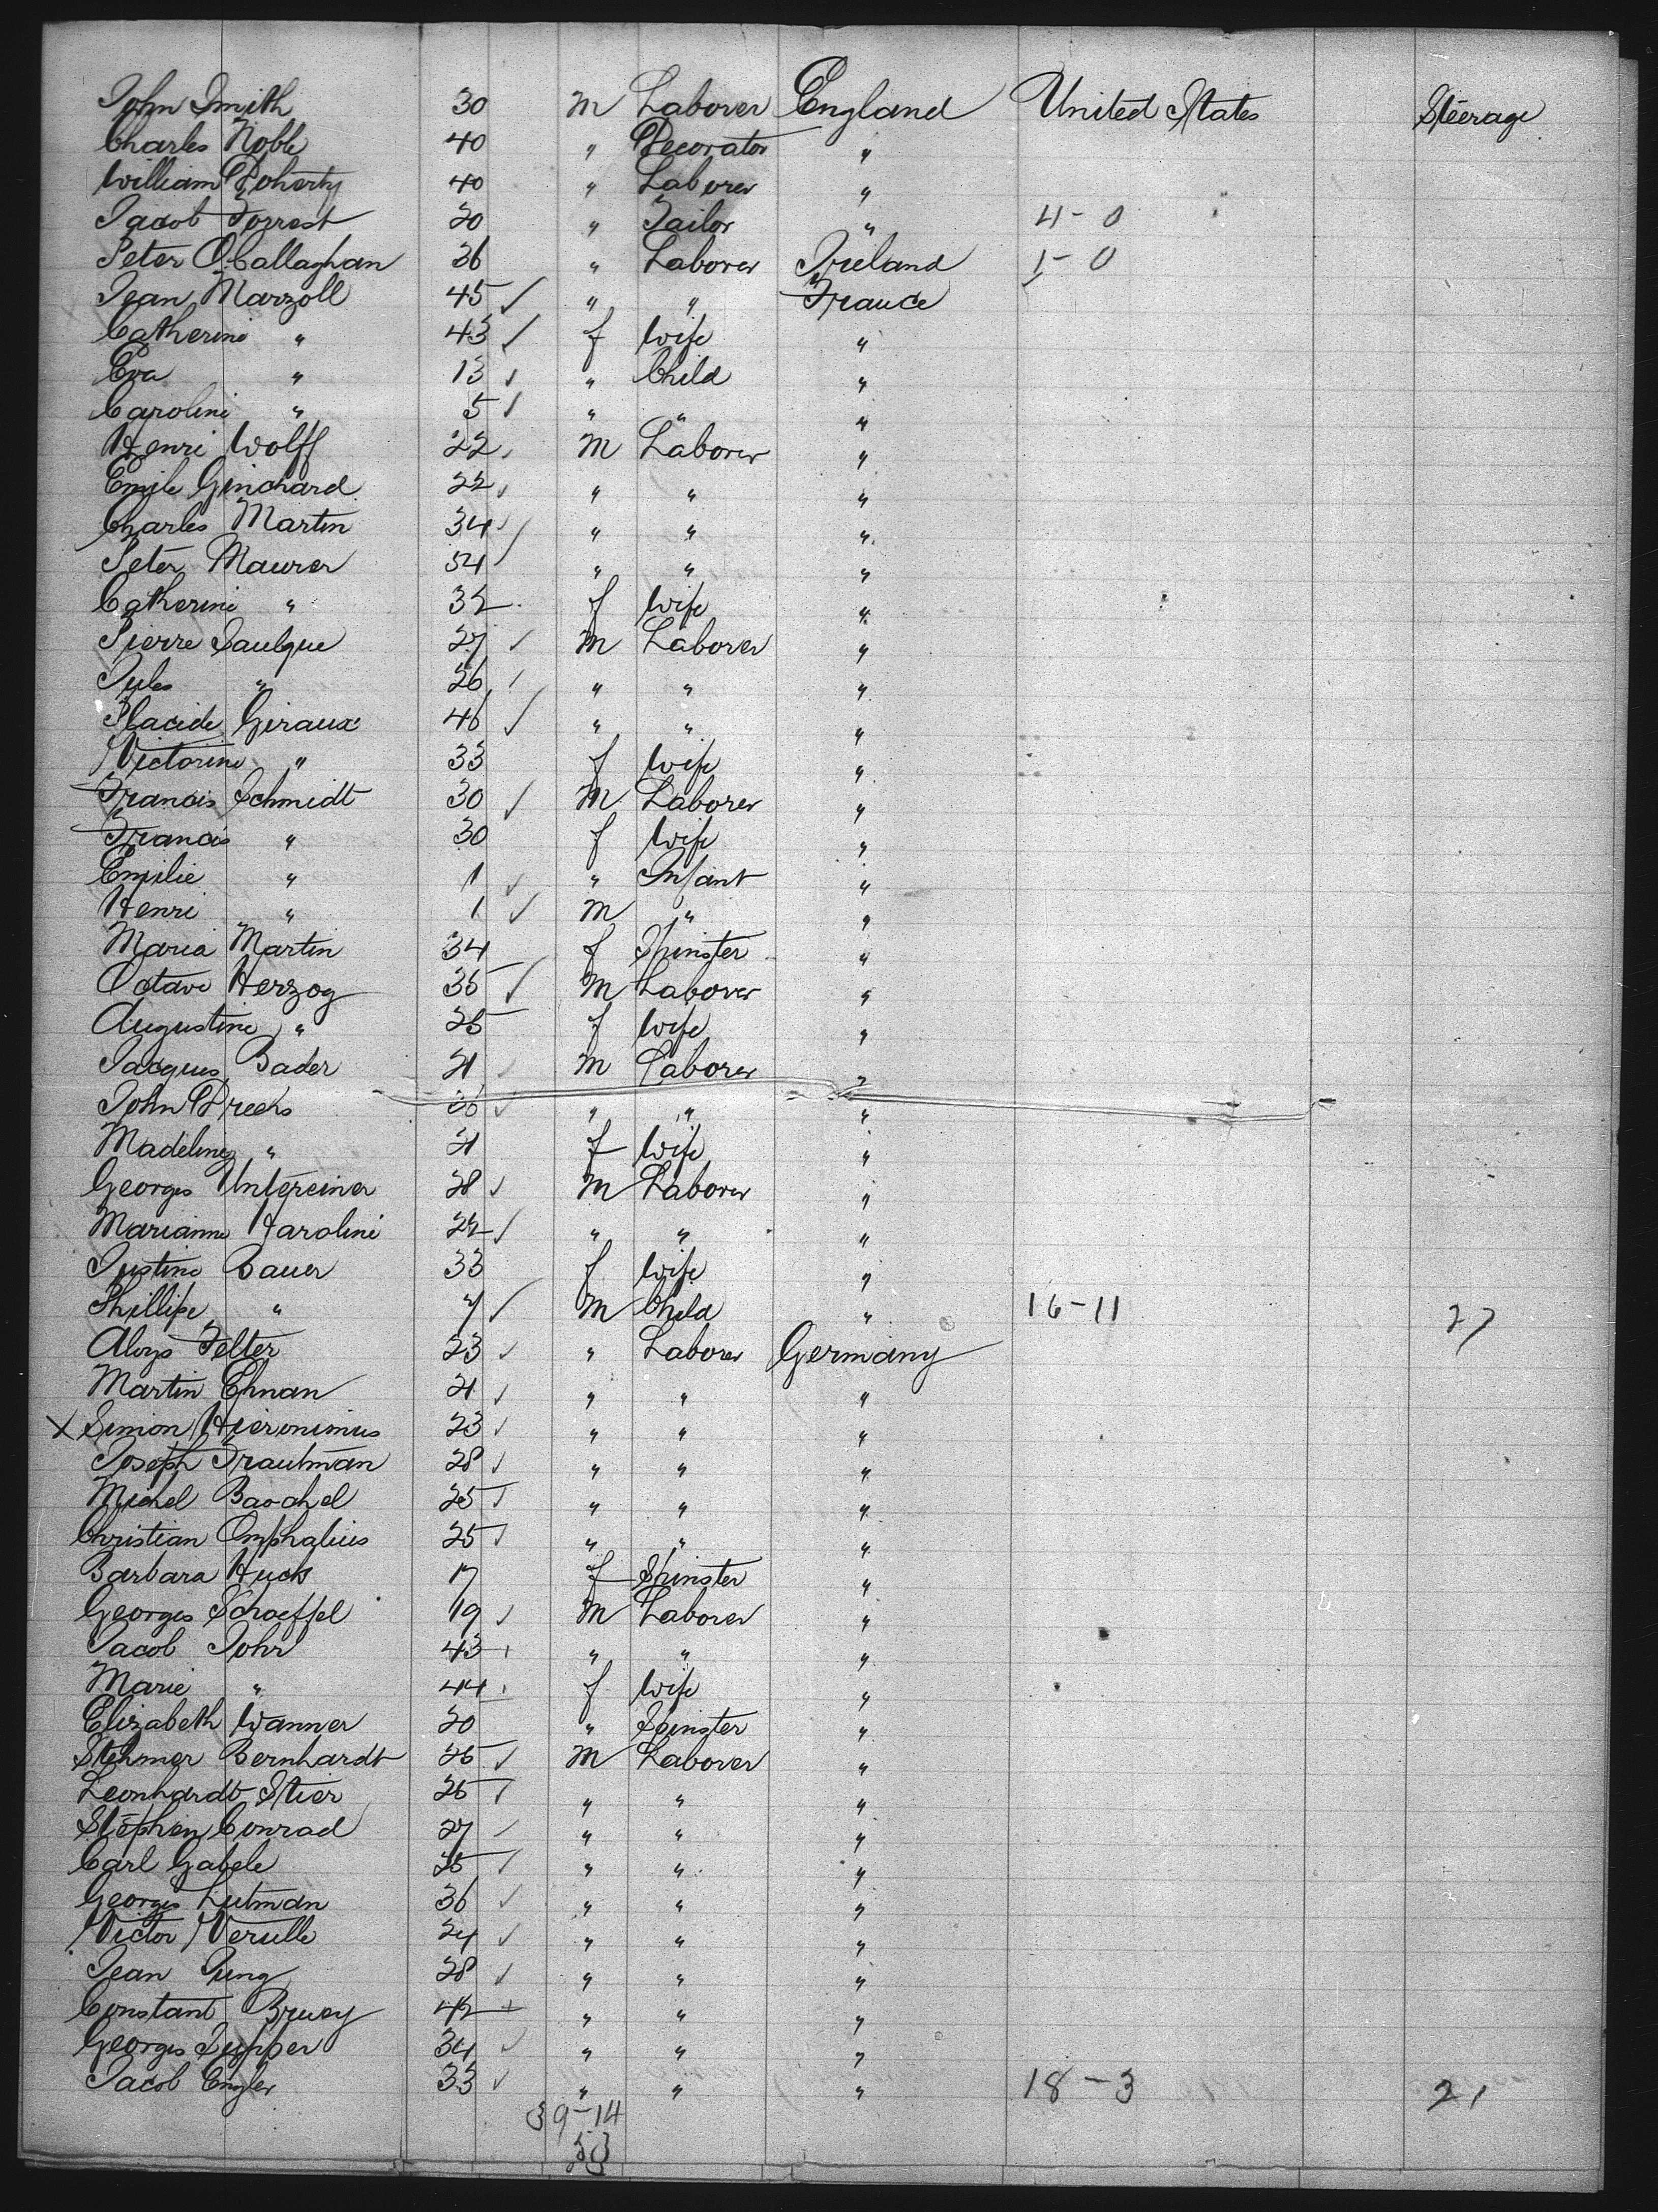 John Smith 30 m Laborer England United States Steerage
Charles Noble 40 " Decorator "
William Doherty 40 " Laborer "
Jacob Forrest 20 " Tailor " 4-0
Peter O'Callaghan 26 " Laborer Ireland 1-0
Jean Marzoll 45 ✓ " " France
Catherine " 43 ✓ f Wife "
Eva " 13 ✓ " Child "
Caroline " 5 ✓ " " "
Henri Wolff 22 m Laborer "
Emile Ginchard 22 " " "
Charles Martin 34 ✓ " " "
Peter Maurer 34 ✓ " " "
Catherine " 32 f Wife "
Pierre Saulque 27 ✓ m Laborer "
Jules " 26 ✓ " " "
Placide Giraux 46 ✓ " " "
Victorine " 33 f Wife "
Francis Schmidt 30 ✓ m Laborer "
Francis " 30 f Wife "
Emilie " 1 ✓ " Infant "
Henri " 1 ✓ m " "
Maria Martin 34 f Spinster "
Octave Herzog 35 ✓ m Laborer "
Augustine " 25 f Wife "
Jacques Bader 21 ✓ m Laborer "
John Dreehs 26 ✓ " " "
Madeline " 21 f Wife "
Georges Untereiner 28 ✓ m Laborer "
Marianne Haroline 22 ✓ " " "
Justine Bauer 33 f Wife "
Phillipe " 7 ✓ m Child " 16-11 27
Aloys Felter 23 ✓ " Laborer Germany
Martin Ehnan 21 ✓ " " "
x Simon Hieronimus 23 ✓ " " "
Joseph Trautman 28 ✓ " " "
Michel Baechel 25 ✓ " " "
Christian Omphalius 25 ✓ " " "
Barbara Huck 17 f Spinster "
Georges Schoeffel 19 ✓ m Laborer "
Jacob Johr 43 " " "
Marie " 44 f Wife "
Elizabeth Wanner 20 " Spinster "
Stehmer Bernhardt 25 ✓ m Laborer "
Leonhardt Stier 25 ✓ " " "
Stephen Conrad 27 ✓ " " "
Carl Gabele 25 ✓ " " "
Georges Lutman 36 ✓ " " "
Victor Verulle 24 ✓ " " "
Jean Jung 28 ✓ " " "
Constant Bruey 42 " " "
Georges Supper 34 ✓ " " "
Jacob Engler 33 ✓ " " " 18-3 21
39-14
53